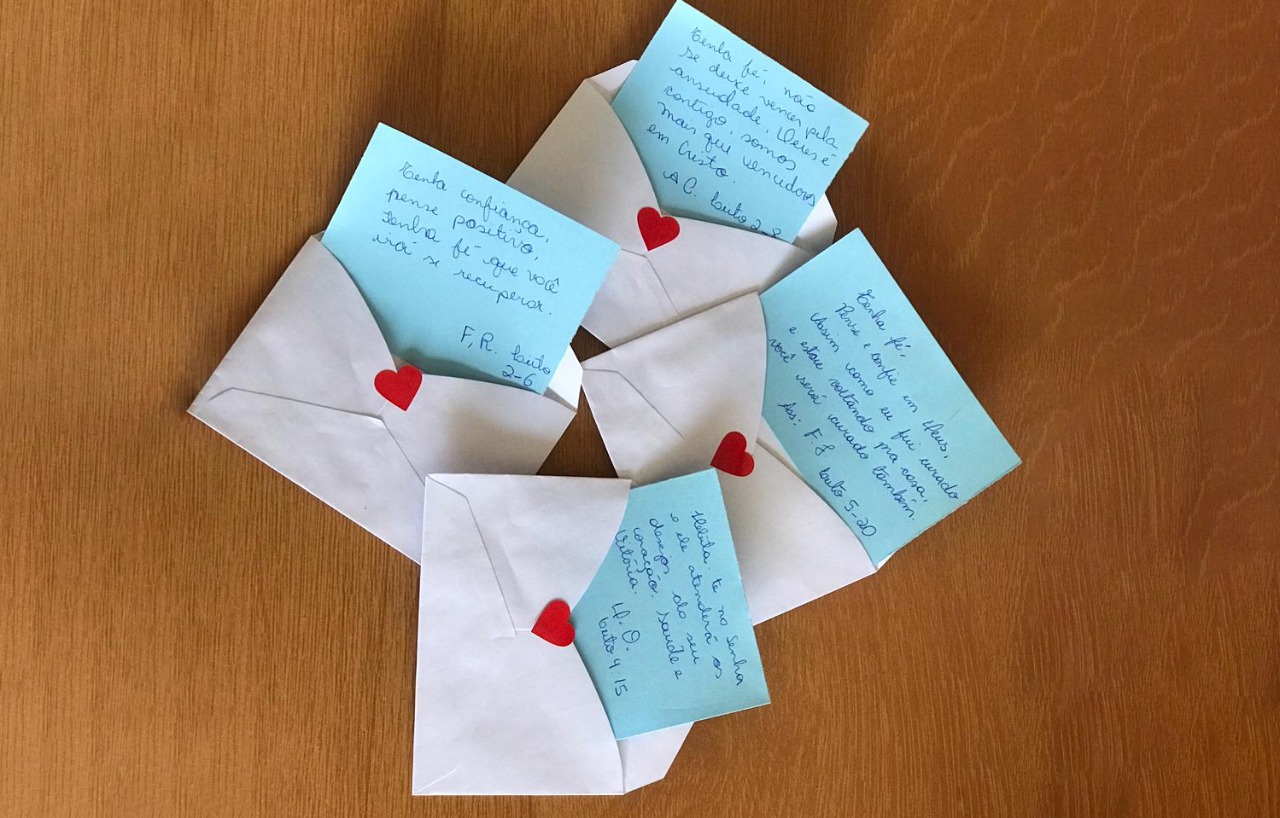 Tenha fé, não
se deixe vencer pela
ansiedade, Deus é
contigo, somos
mais que vencedores
em Cristo.
A C. Leito 2-8
Tenha confiança,
pense positivo,
tenha fé que você
irá se recuperar.
F, R. Leito
2-6
Tenha fé,
Pense e confie em Deus,
Assim como eu fui curado
e estou voltando pra casa,
você será curado também.
F. J Leito 5-20
Deleita-te no Senhor
e ele atenderá os
desejos do seu
coração. Saúde e
Vitória.
D. O.
Leito 4-15